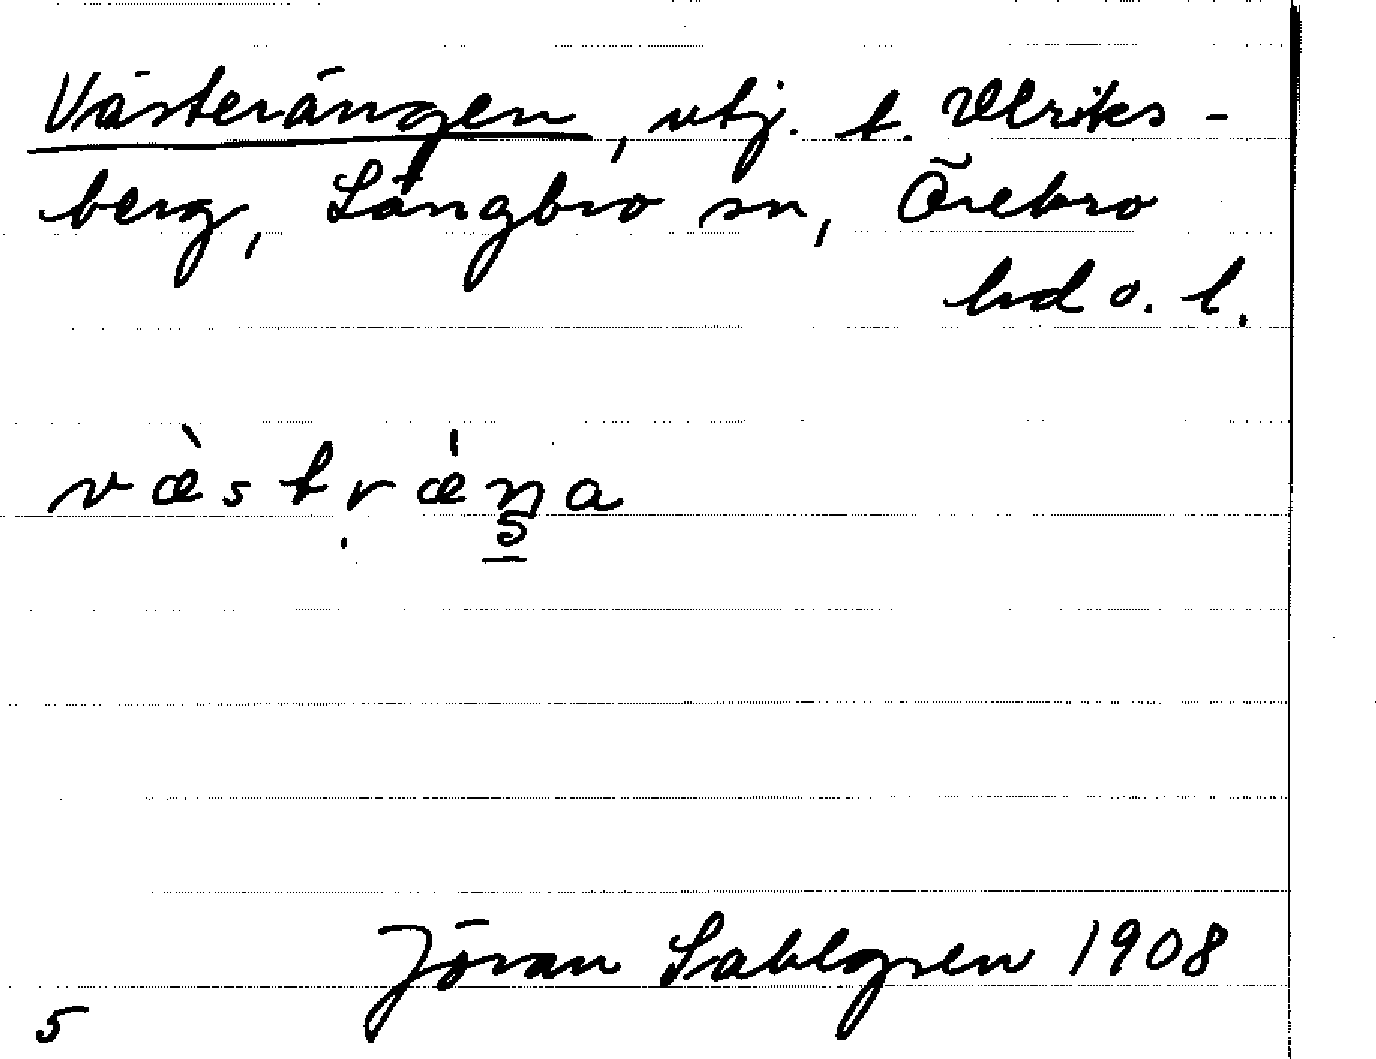 Västerängen, utj. t. Ulriks-
berg, Långbro sn, Örebro
hd o. l.
væ̀stṛǽŋa
5
Jöran Sahlgren 1908
5